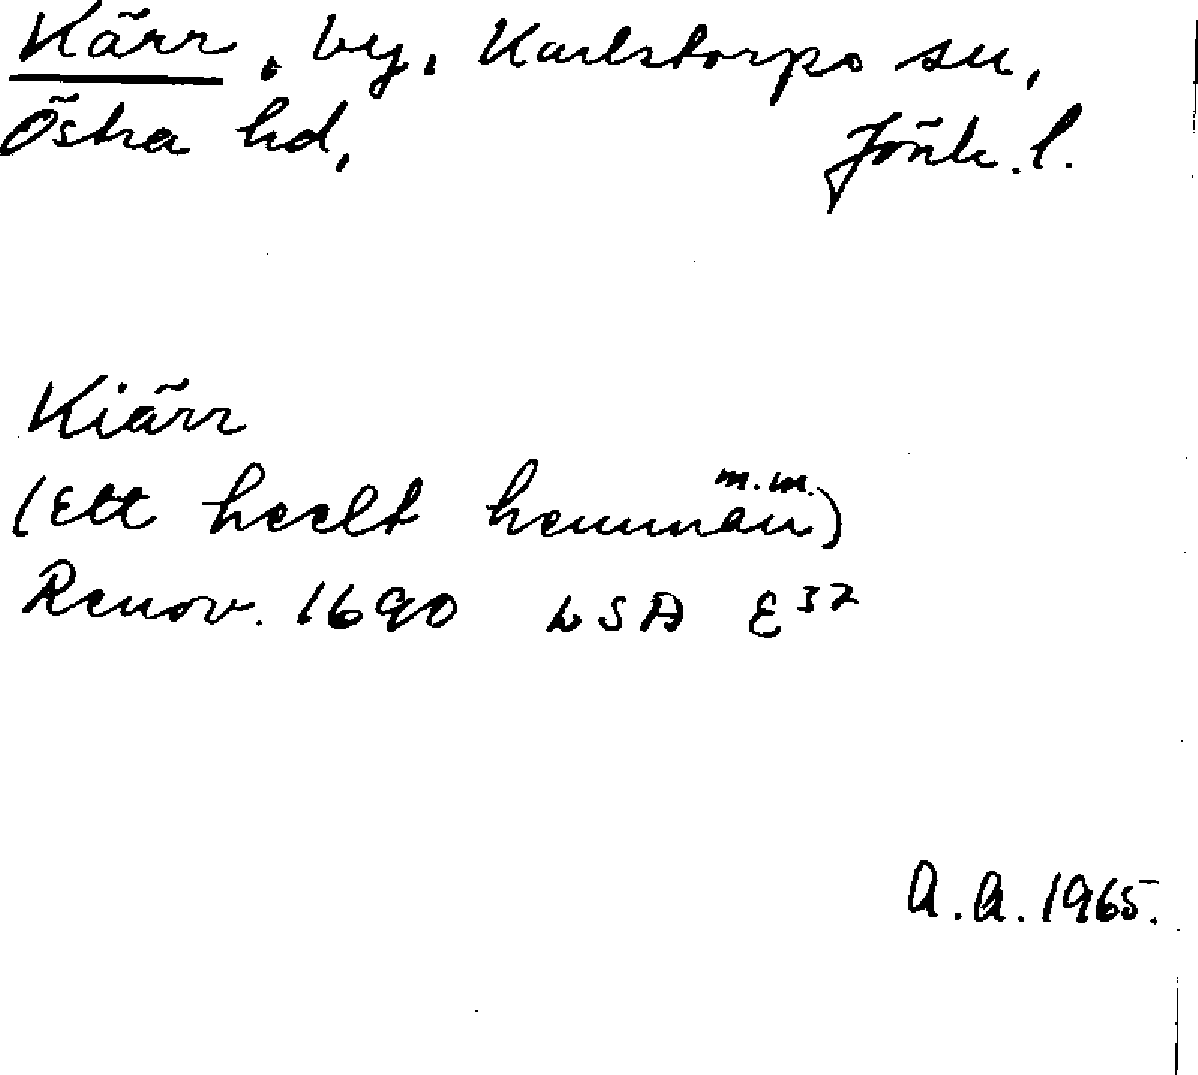 Kärr, by, Karlstorps sn,
Östra hd, Jönk. l.
Kiärr
(Ett heelt hemman m.m.)
Renov. 1690 LSA E 37
A.A. 1965.